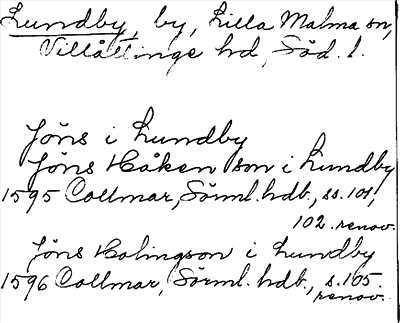 Lundby, by, Lilla Malma sn,
Villåttinge hd, Söd. l.
Jöns i Lundby
Jöns Håkenson i Lundby
1595 Collmar, Sörml. hdb., ss. 101,
102. renov.
Jöns Holingson i Lundby
1596 Collmar, Sörml. hdb., s. 105.
renov.